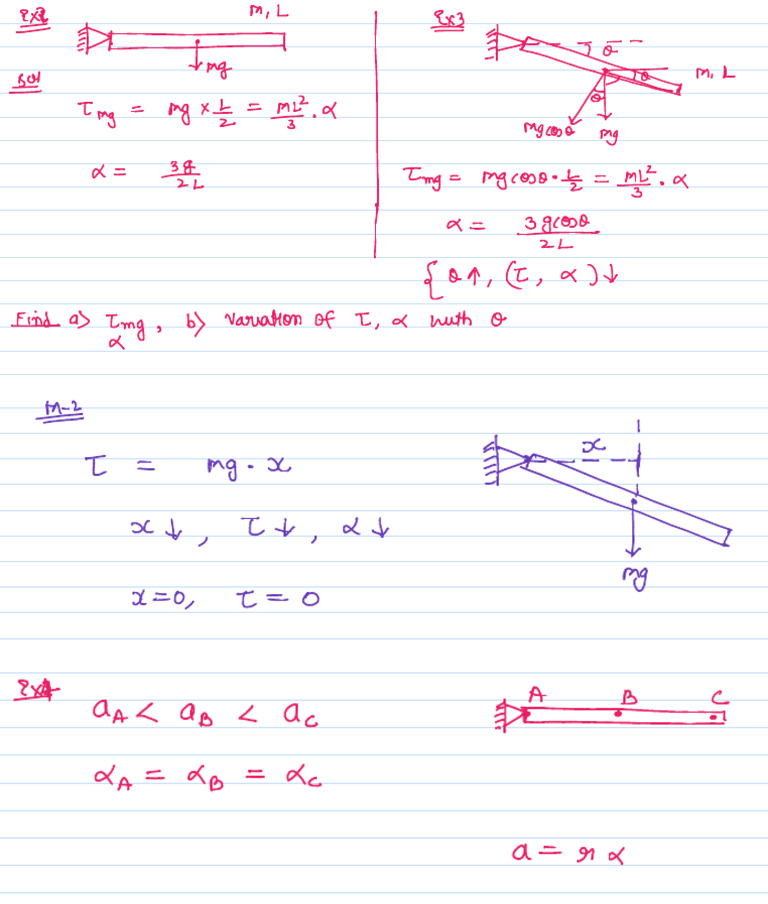 Ex2
m, L
mg
Sol
τmg = mg × L/2 = mL²/3 . α
α = 3g/2L
Ex3
θ
θ
m, L
θ
mgcosθ
mg
τmg = mgcosθ · L/2 = mL²/3 . α
α = 3gcosθ/2L
{ θ↑, (τ, α)↓
Find a) τmg, b) variation of τ, α with θ
α
M-2
τ = mg · x
x
x↓, τ↓, α↓
mg
x=0, τ = 0
Ex4
A B C
aA < aB < aC
αA = αB = αC
a = rα